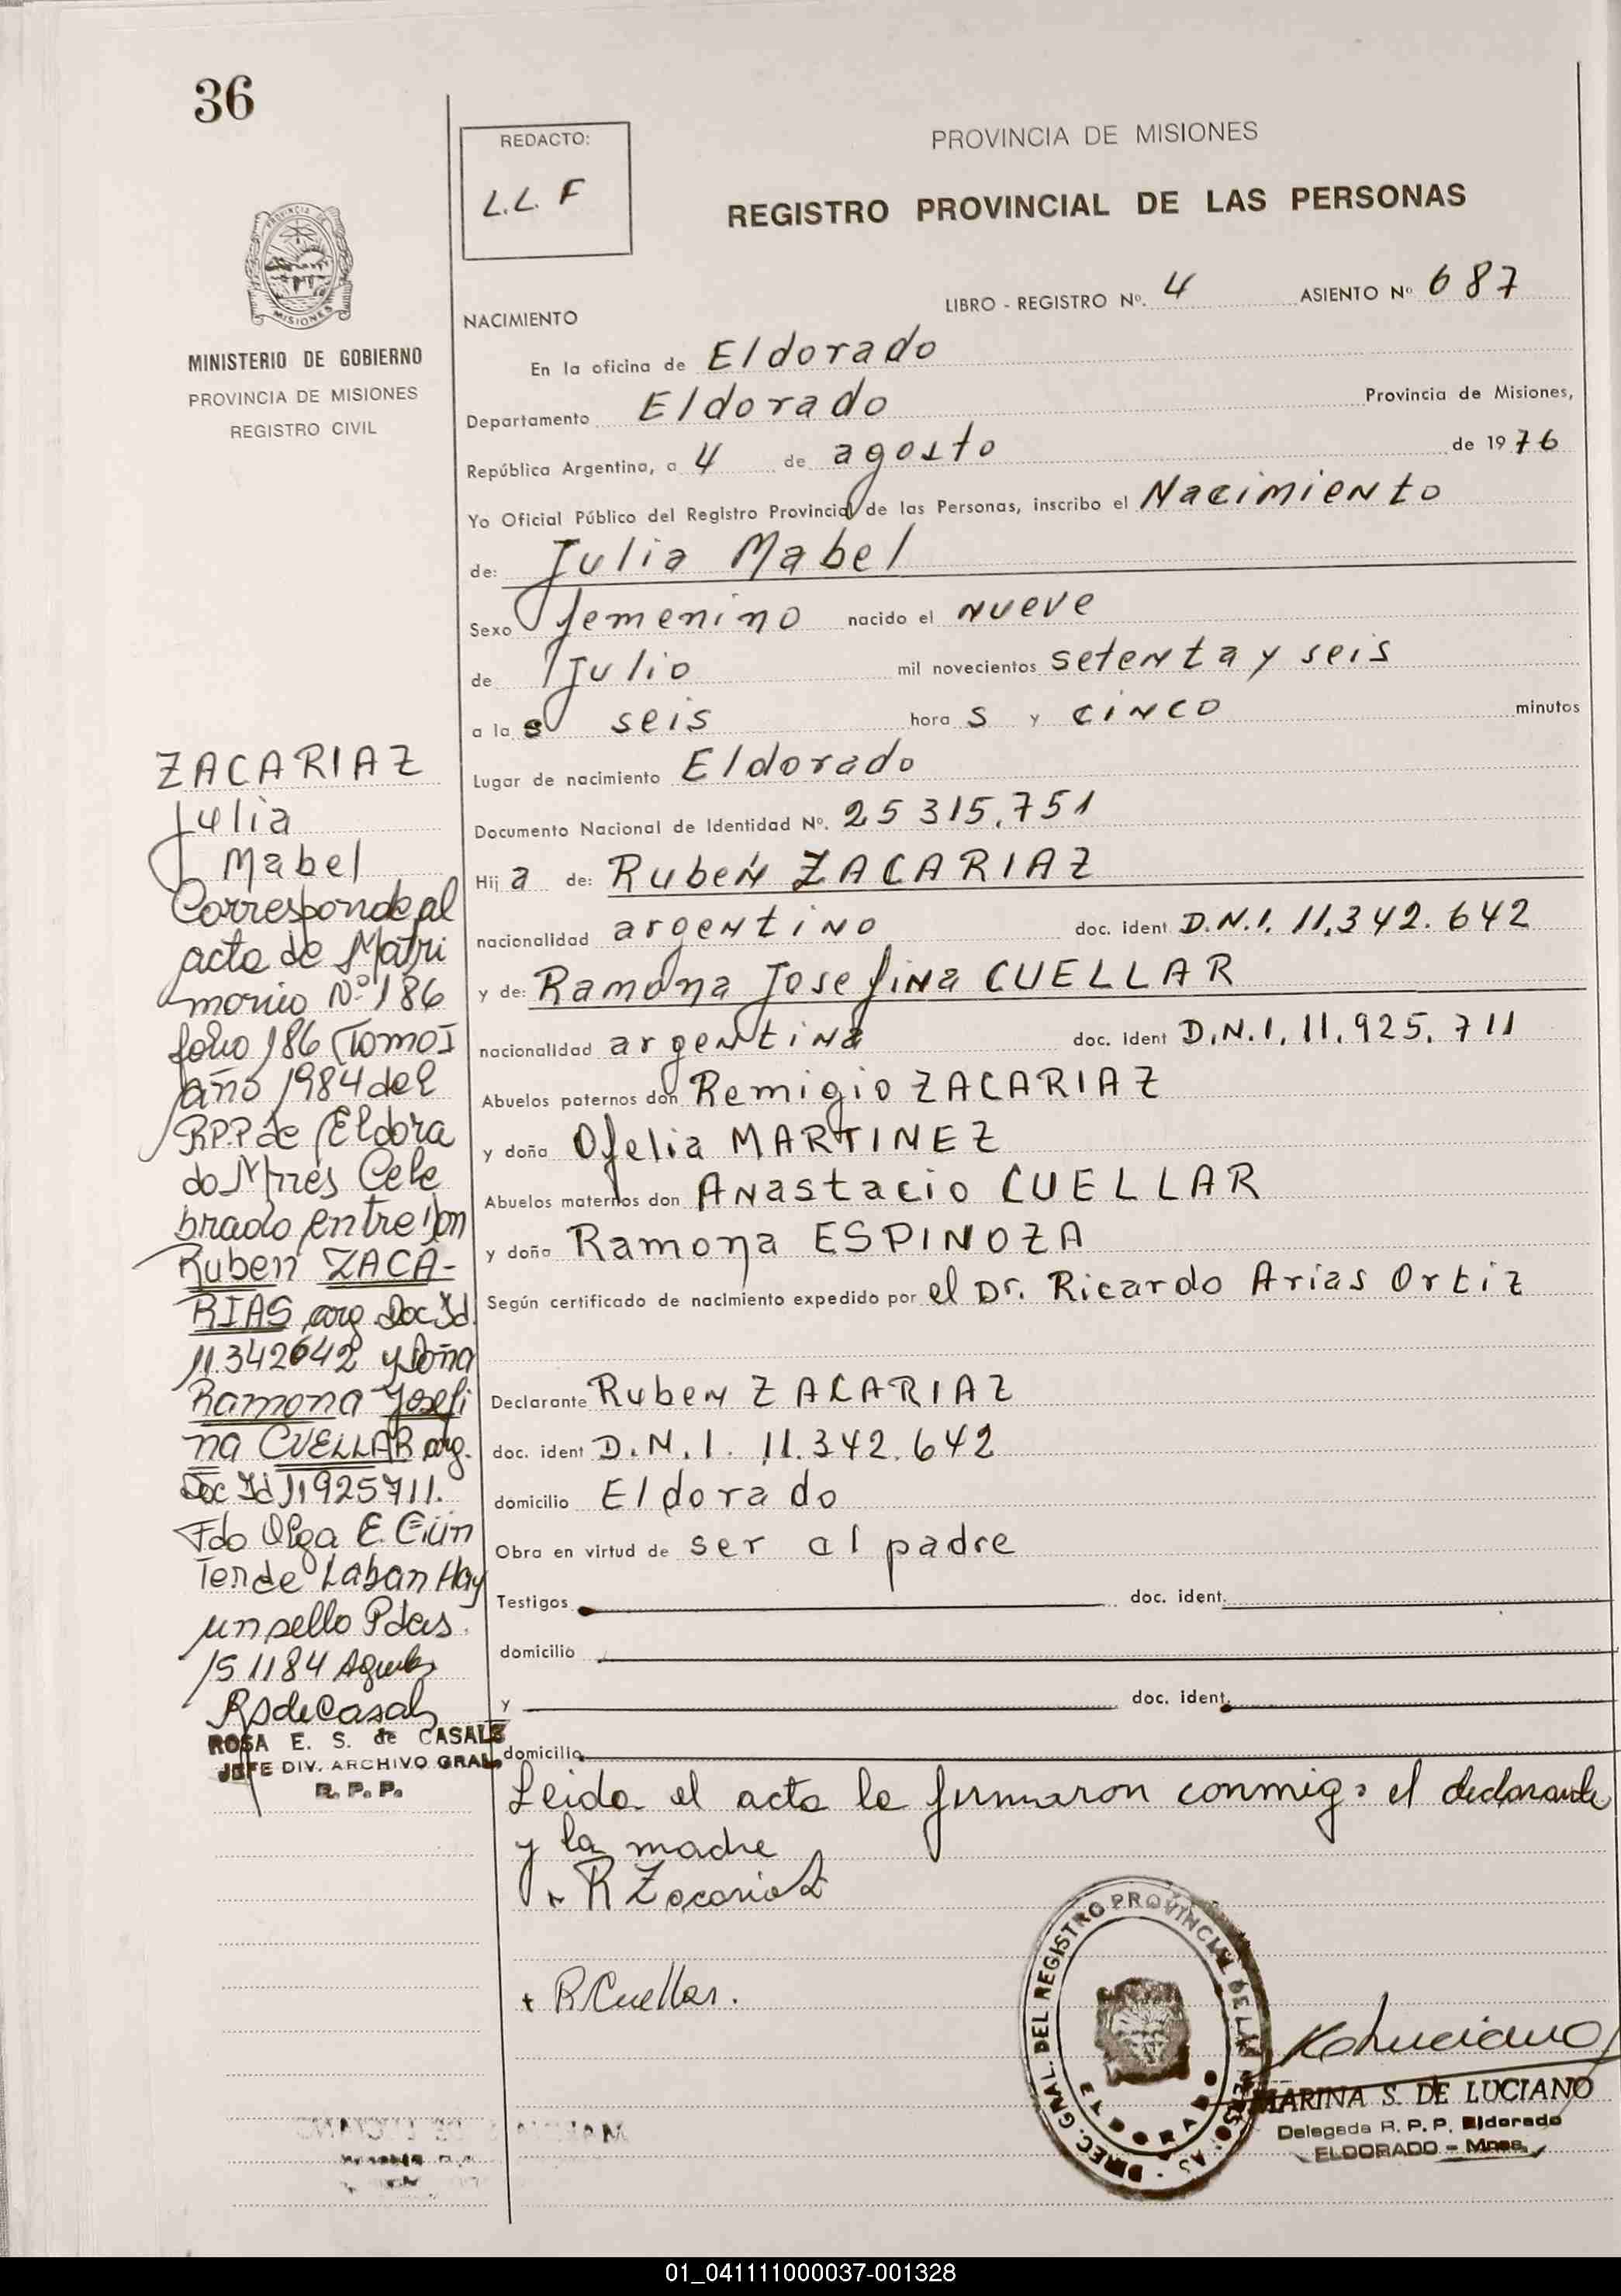 36
REDACTO:
L.L. F
PROVINCIA DE MISIONES
REGISTRO PROVINCIAL DE LAS PERSONAS
PROVINCIA DE
MISIONES
MINISTERIO DE GOBIERNO
PROVINCIA DE MISIONES
REGISTRO CIVIL
LIBRO - REGISTRO Nº. 4 ASIENTO Nº 687
NACIMIENTO
En la oficina de Eldorado
Departamento Eldorado Provincia de Misiones,
República Argentina, a 4 de agosto de 1976
Yo Oficial Público del Registro Provincial de las Personas, inscribo el Nacimiento
de: Julia Mabel
Sexo femenino nacido el nueve
de Julio mil novecientos setenta y seis
a las seis horas y cinco minutos
Lugar de nacimiento Eldorado
Documento Nacional de Identidad Nº. 25 315.751
Hija de: Rubén ZACARIAZ
nacionalidad argentino doc. ident D.N.I. 11.342.642
y de: Ramona Josefina CUELLAR
nacionalidad argentina doc. ident D.N.I. 11.925.711
Abuelos paternos don Remigio ZACARIAZ
y doña Ofelia MARTINEZ
Abuelos maternos don Anastacio CUELLAR
y doña Ramona ESPINOZA
Según certificado de nacimiento expedido por el Dr. Ricardo Arias Ortiz
Declarante Ruben ZACARIAZ
doc. ident D.N.I. 11.342.642
domicilio Eldorado
Obra en virtud de ser el padre
Testigos doc. ident.
domicilio
y doc. ident.
domicilio
Leida el acta la firmaron conmigo el declarante
y la madre
R Zacariaz
R Cuellar.
ZACARIAZ
Julia
Mabel
Corresponde al
acta de Matri
monio Nº 186
folio 186 Tomo I
año 1984 del
RPP de Eldora
do Mnes Cele
brado entre Don
Ruben ZACA-
RIAS arg Doc Id
11.342642 y Doña
Ramona Josefi
na CUELLAR arg.
Doc Id 11925711.
Fdo Olga E. Gün
ter de Laban Hay
un sello Pdas.
15 11 84
RSdeCasals
ROSA E. S. de CASALS
JEFE DIV. ARCHIVO GRAL.
R. P. P.
DIREC. GRAL. DEL REGISTRO PROVINCIAL DE LAS PERSONAS
ELDORADO
MARINA S. DE LUCIANO
Delegada R. P. P. Eldorado
ELDORADO - Mnes.
01_041111000037-001328